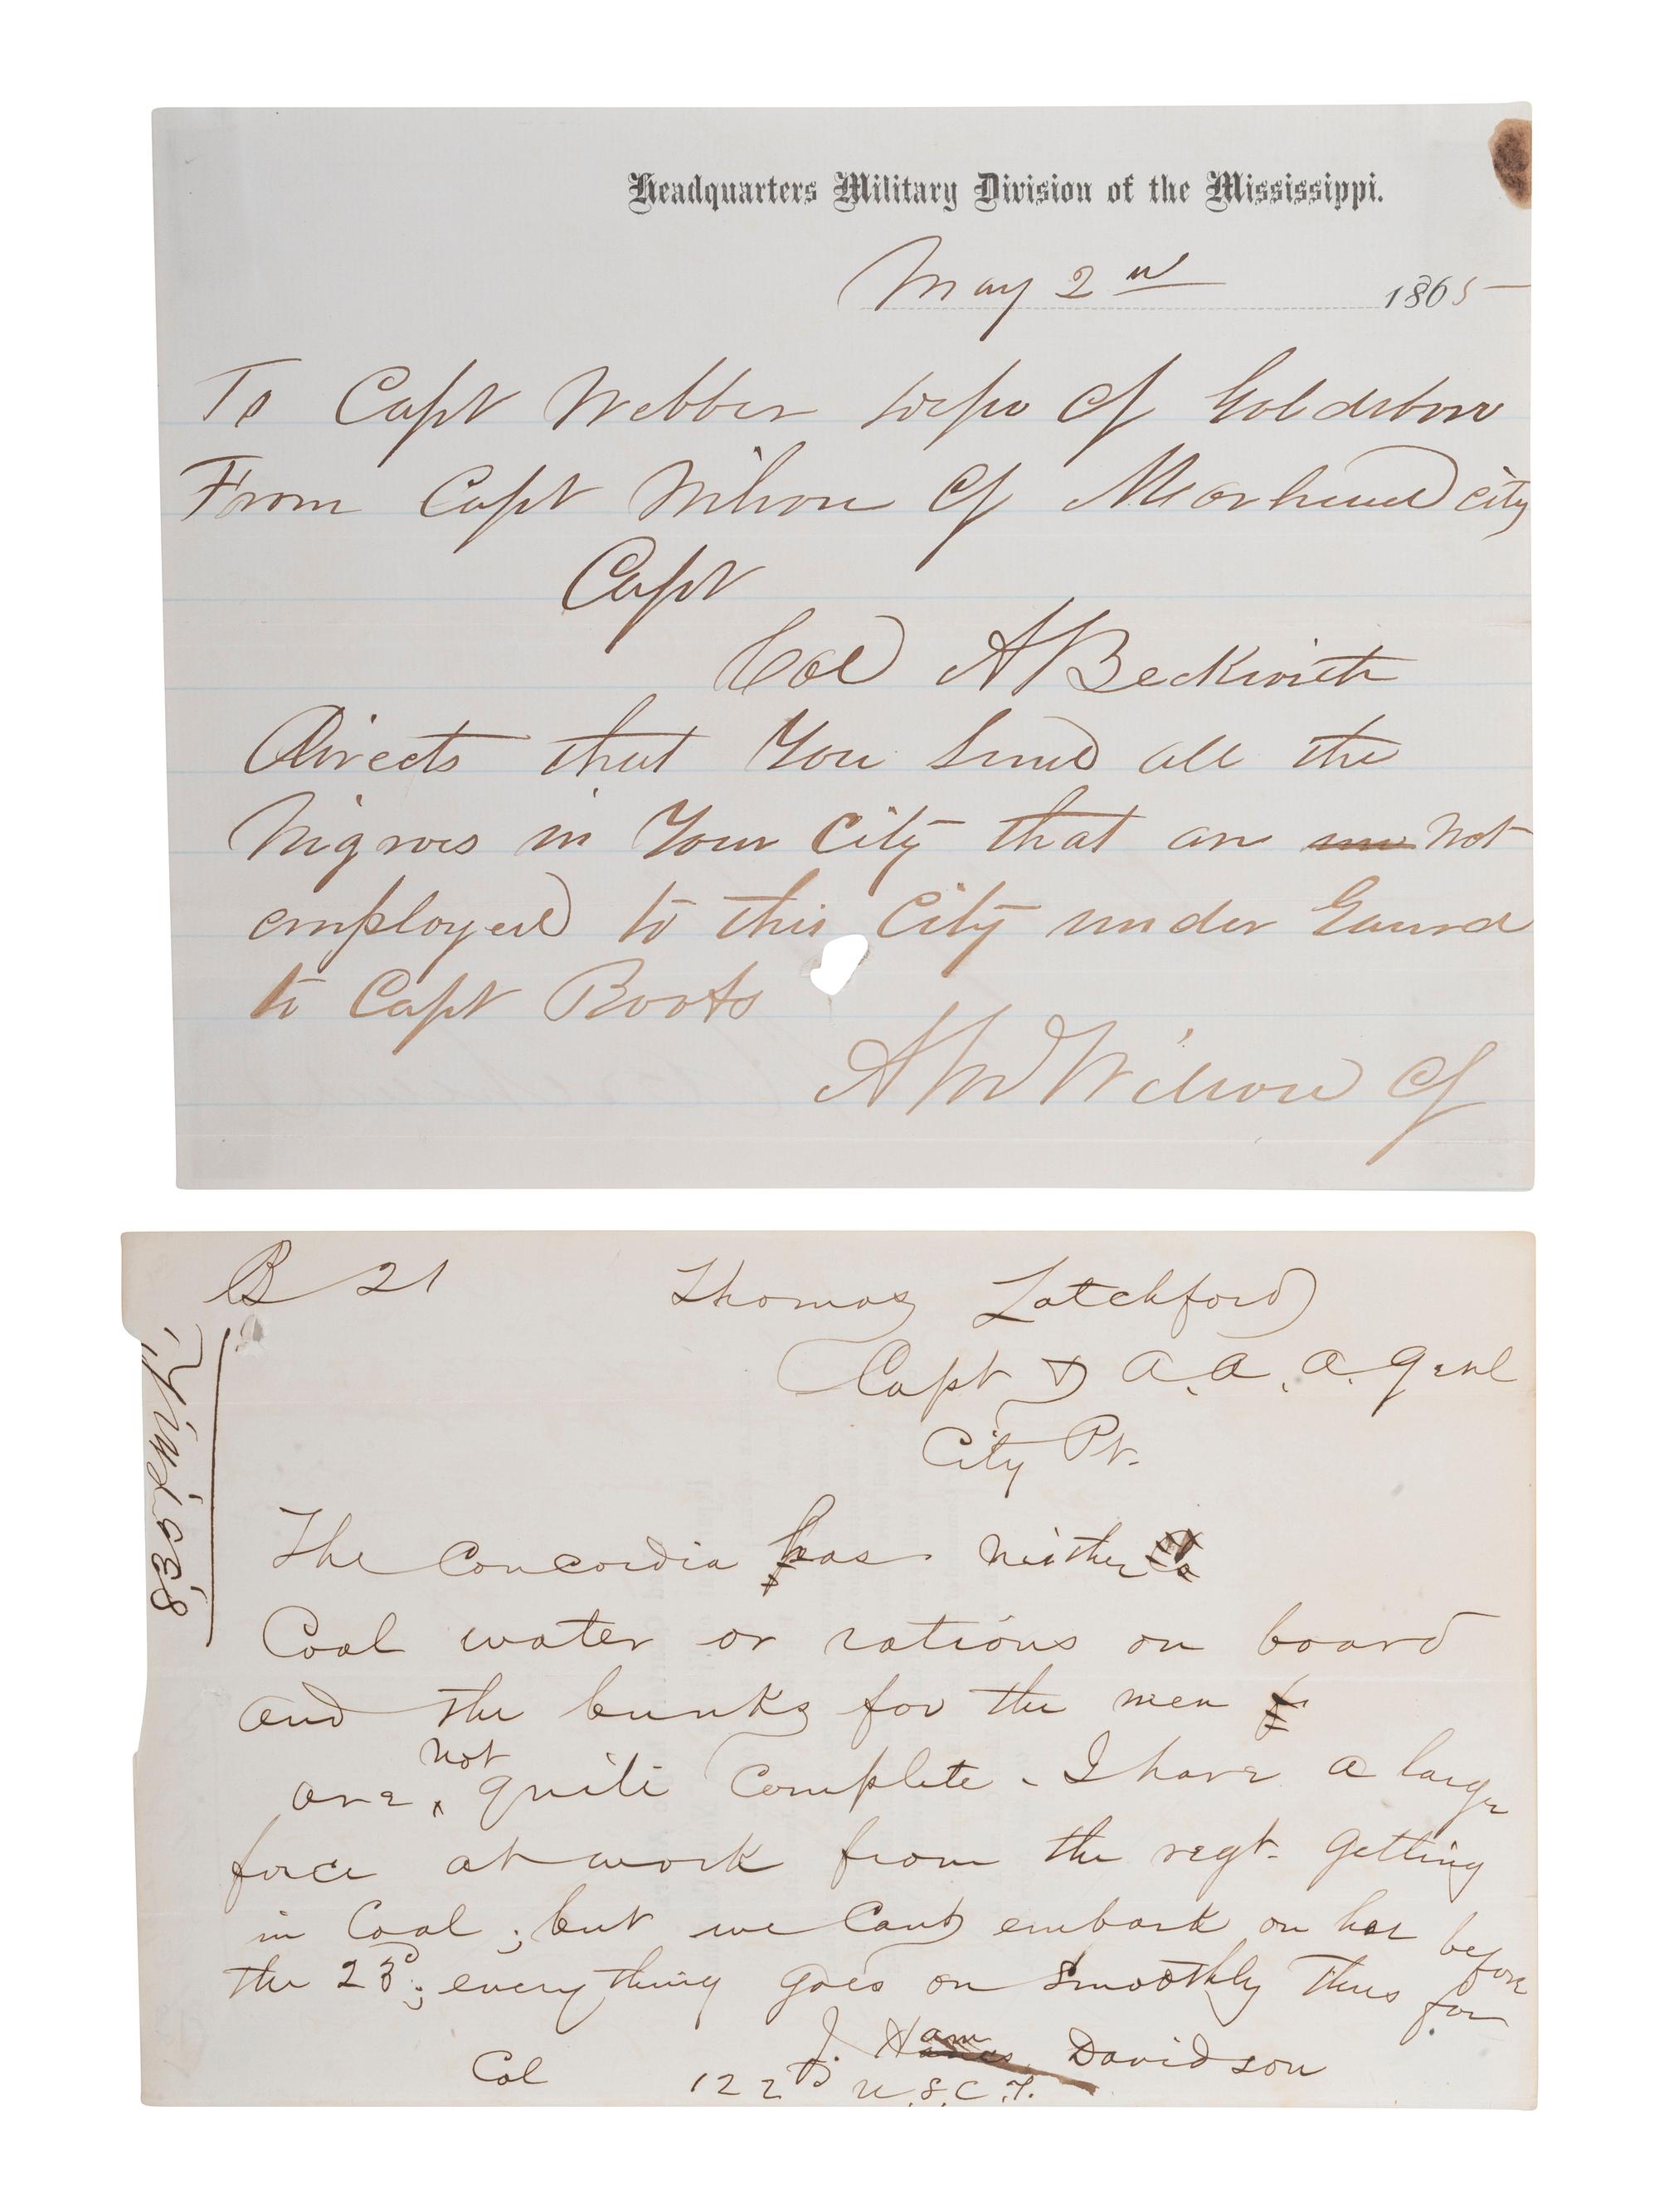 Headquarters Military Division of the Mississippi.
May 2nd 1865
To Capt Webber of Goldsboro
From Capt Wilson Cf Morhead city
Capt
Col A Beckwith
Directs that You Send all the
Nigroes in Your City that are not
employed to this City under Gaurd
to Capt Boots
A W Wilson Cf
B 21
Thomas Latchford
Capt & A. A. A. Genl
City Pt.
The Concordia has neither
Coal water or rations on board
and the bunks for the men
not
are quite complete - I have a large
force at work from the regt. getting
in Coal; but we Cant embark on her before
the 23d; everything goes on smoothly thus far
J. Ham Davidson
Col 122d U.S.C.T.